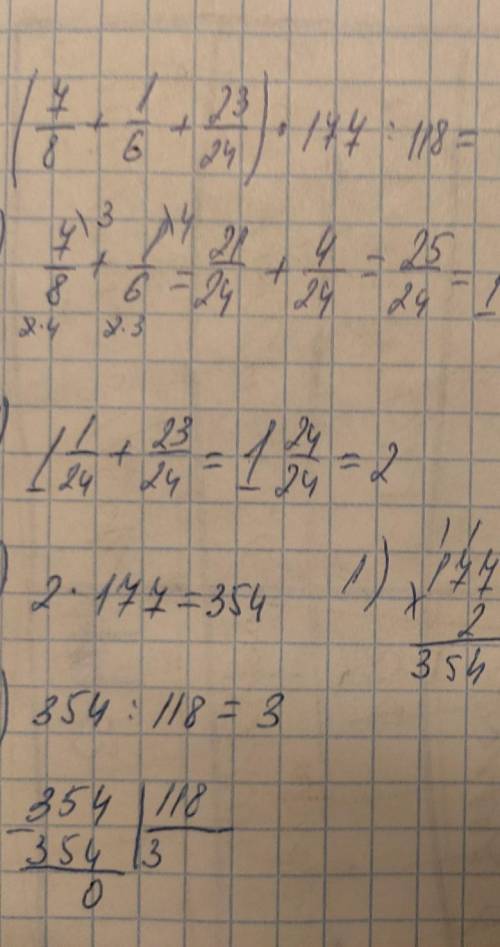 (7/8 + 1/6 + 23/24) · 177 : 118 =
) 7/8 \3 + 1/6 \4 = 21/24 + 4/24 = 25/24 = 1
2·4 2·3
) 1 1/24 + 23/24 = 1 24/24 = 2
) 2 · 177 = 354
1) 11
× 177
2
354
) 354 : 118 = 3
- 354 | 118
354 | 3
0